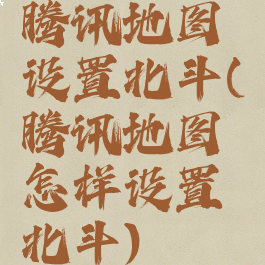 腾讯地图
设置北斗(
腾讯地图
怎样设置
北斗)